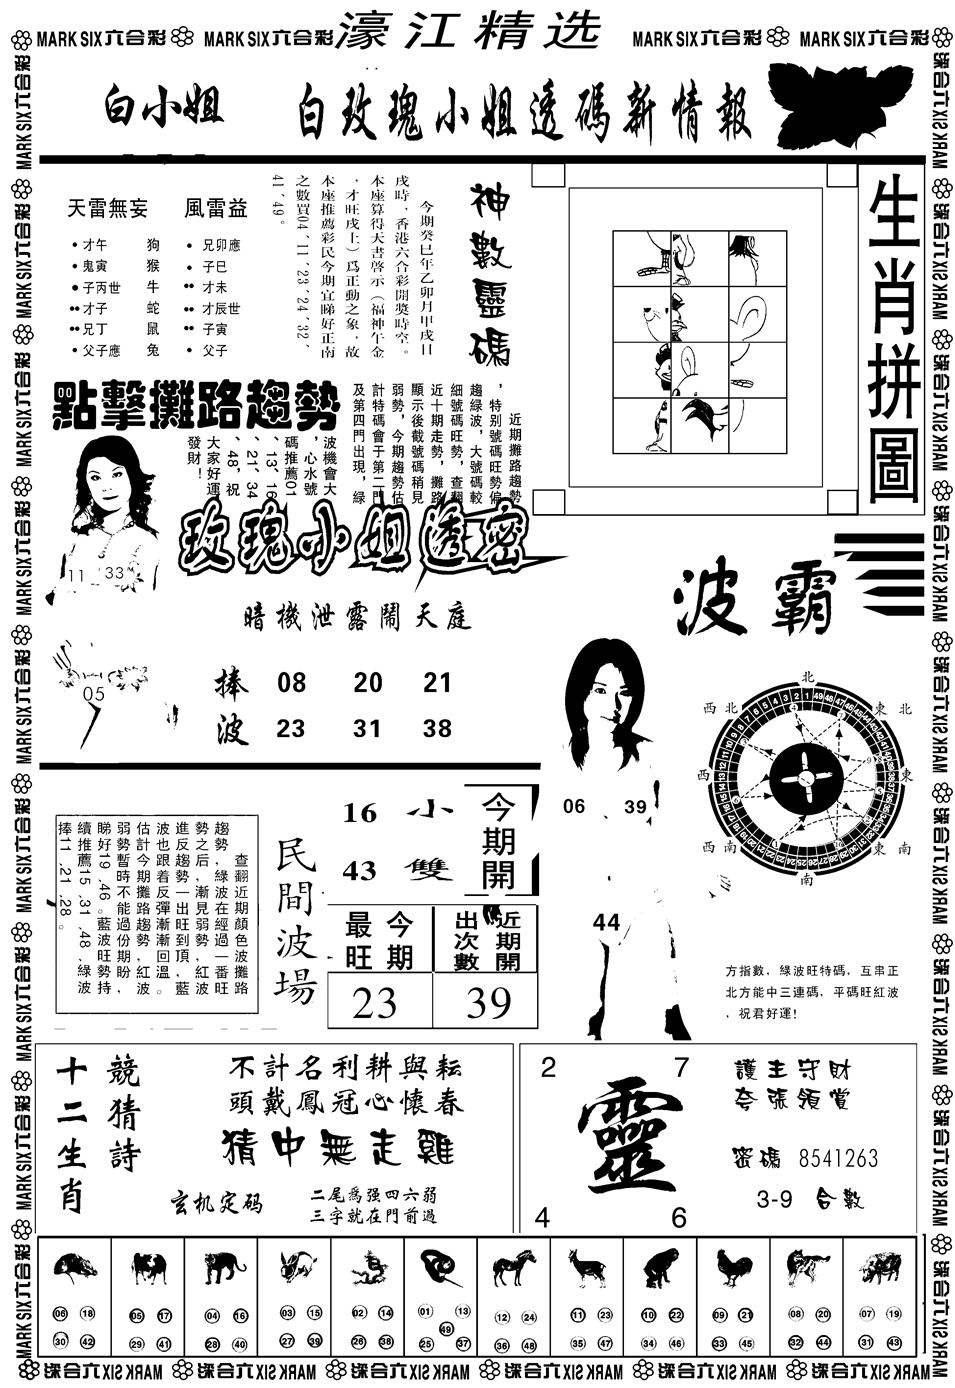 MARK SIX六合彩 MARK SIX六合彩 濠江精选 MARK SIX六合彩 MARK SIX六合彩
白小姐 白玫瑰小姐透碼新情報
天雷無妄 風雷益
才午 狗 兄卯應
鬼寅 猴 子巳
子丙世 牛 才未
才子 蛇 才辰世
兄丁 鼠 子寅
父子應 兔 父子
神數靈碼
今期癸巳年乙卯月甲戌日
戌時，香港六合彩開獎時空。
本座算得天書啓示（福神午金
，才旺戌上）爲正動之象，故
本座推薦彩民今期宜睇好正南
之數買04、11、23、24、32、
41、49。
生肖拼圖
點擊攤路趨勢
近期攤路趨勢
，特別號碼旺勢偏
趨綠波，大號碼較
細號碼旺勢，查翻
近十期走勢，攤路
顯示後截號碼稍見
弱勢，今期趨勢估
計特碼會于第二門
及第四門出現，綠
波機會大
，心水號
碼推薦01
、13、16
、21、34
、48，祝
大家好運
發財！
11 33
05
玫瑰小姐透密
暗機泄露鬧天庭
捧 08 20 21
波 23 31 38
波霸
06 39
44
北
西北 東北
西 東
西南 東南
南
方指數，綠波旺特碼，互串正
北方能中三連碼，平碼旺紅波
，祝君好運！
查翻近期顏色波攤路
趨勢，綠波在經過一番旺
勢之后，漸見弱勢，紅波
進反趨勢一出旺到頂，藍
波也跟着反彈漸漸回溫。
估計今期攤路趨勢紅波
弱勢暫時不能過份期盼，
睇好19、46。藍波旺勢持
續推薦15、31、48、綠波
捧11、21、28。
民間波場
16 小 今期開
43 雙
今期最旺 近期開出次數
23 39
競猜詩
十二生肖
不計名利耕與耘
頭戴鳳冠心懷春
猜中無走雞
玄机定码
二尾爲强四六弱
三字就在門前過
2 7
靈
4 6
護主守財
夸張領賞
密碼 8541263
3-9 合數
06 18 05 17 04 16 03 15 02 14 01 13 12 24 11 23 10 22 09 21 08 20 07 19
49
30 42 29 41 28 40 27 39 26 38 25 37 36 48 35 47 34 46 33 45 32 44 31 43
MARK SIX六合彩 MARK SIX六合彩 MARK SIX六合彩 MARK SIX六合彩 MARK SIX六合彩 MARK SIX六合彩